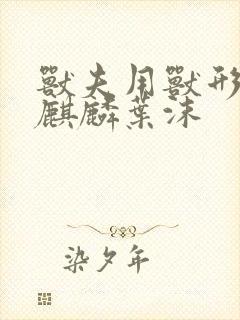 獸夫用獸形
麒麟葉沫
染夕年